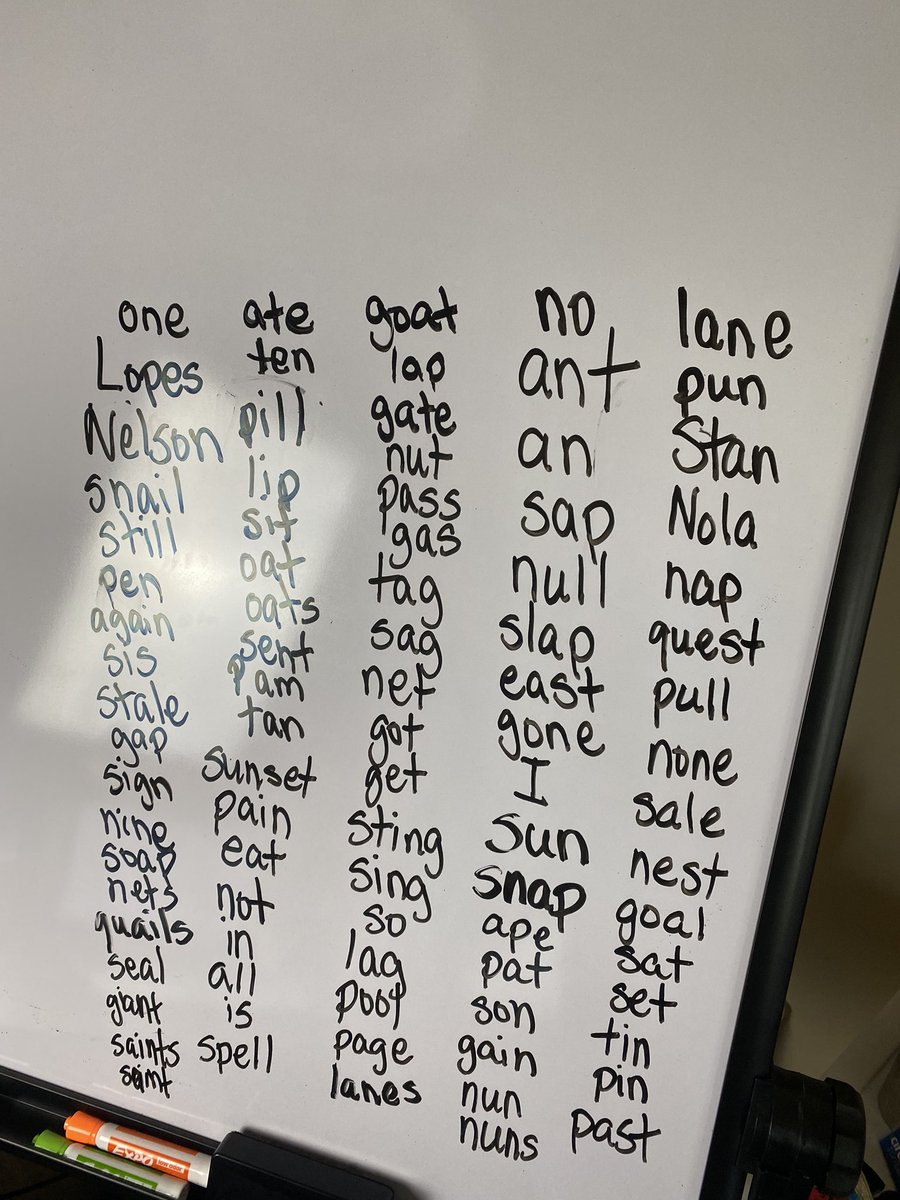 one
Lopes
Nelson
snail
still
pen
again
sis
stale
gap
sign
nine
soap
nets
quails
seal
giant
saints
saint
ate
ten
pill
lip
sit
oat
oats
sent
pam
tan
sunset
pain
eat
not
in
all
is
spell
goat
lap
gate
nut
pass
gas
tag
sag
net
got
get
sting
sing
so
lag
poof
page
lanes
no
ant
an
sap
null
slap
east
gone
I
sun
snap
ape
pat
son
gain
nun
nuns
lane
pun
Stan
Nola
nap
quest
pull
none
sale
nest
goal
sat
set
tin
pin
past
EXPO